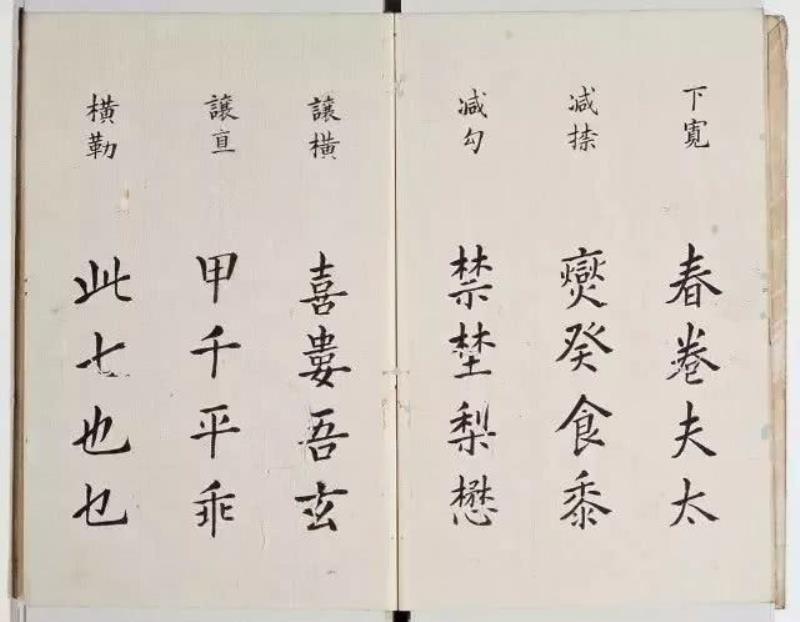 下寬
春卷夫太
減捺
燮癸食黍
減勾
禁埜梨懋
讓橫
喜婁吾玄
讓直
甲千平乖
橫勒
此七也乜